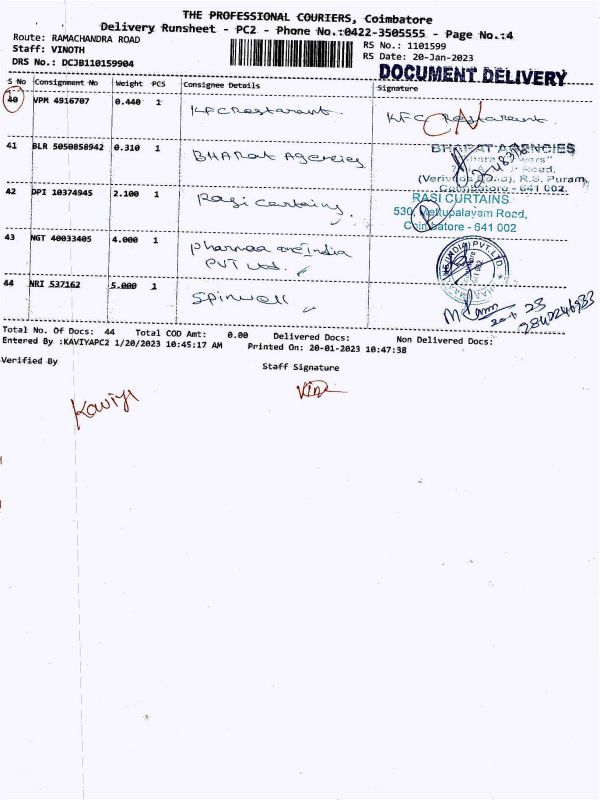 THE PROFESSIONAL COURIERS, Coimbatore
Delivery Runsheet - PC2 - Phone No.:0422-3505555 - Page No.:4
Route: RAMACHANDRA ROAD
RS No.: 1101599
Staff: VINOTH
RS Date: 20-Jan-2023
DRS No.: DCJB110159904
DOCUMENT DELIVERY
S No Consignment No Weight PCS Consignee Details Signature
40 VPM 4916707 0.440 1 KFC Restarant KFC Restarent
CN
41 BLR 5050850942 0.310 1 BHARat Agencies
BHARAT AGENCIES
Road), R.S. Puram,
Coimbatore - 641 002.
42 DPI 10374945 2.100 1 Rasi Curtains
RASI CURTAINS
530, Mettupalayam Road,
Coimbatore - 641 002
43 NGT 40033405 4.000 1
(INDIA) PVT. LTD
PVT Ltd.
44 NRI 537162 5.000 1 Spinwell
Total No. Of Docs: 44 Total COD Amt: 0.00 Delivered Docs: Non Delivered Docs:
Entered By :KAVIYAPC2 1/20/2023 10:45:17 AM Printed On: 20-01-2023 10:47:38
Verified By
Staff Signature
Kaviya